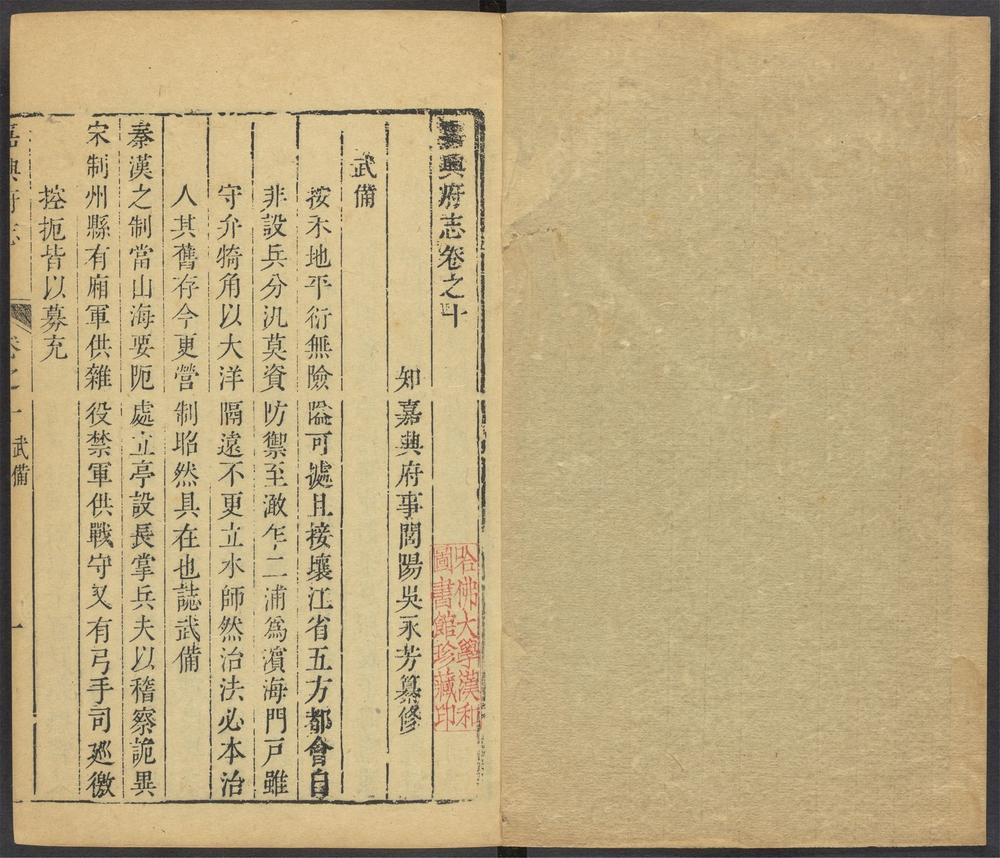 嘉興府志卷之十
知嘉興府事閭陽吳永芳纂修
武備
按禾地平衍無險隘可據且接壤江省五方都會自
非設兵分汛莫資防禦至澉乍二浦為濱海門戶雖
守介犄角以大洋隔遠不更立水師然治法必本治
人其舊存今更營制昭然具在也誌武備
秦漢之制當山海要阨處立亭設長掌兵夫以稽察詭異
宋制州縣有廂軍供雜役禁軍供戰守又有弓手司廵徼
控扼皆以募充
嘉興府志 卷之十 武備 一
哈佛大學漢和
圖書館珍藏印